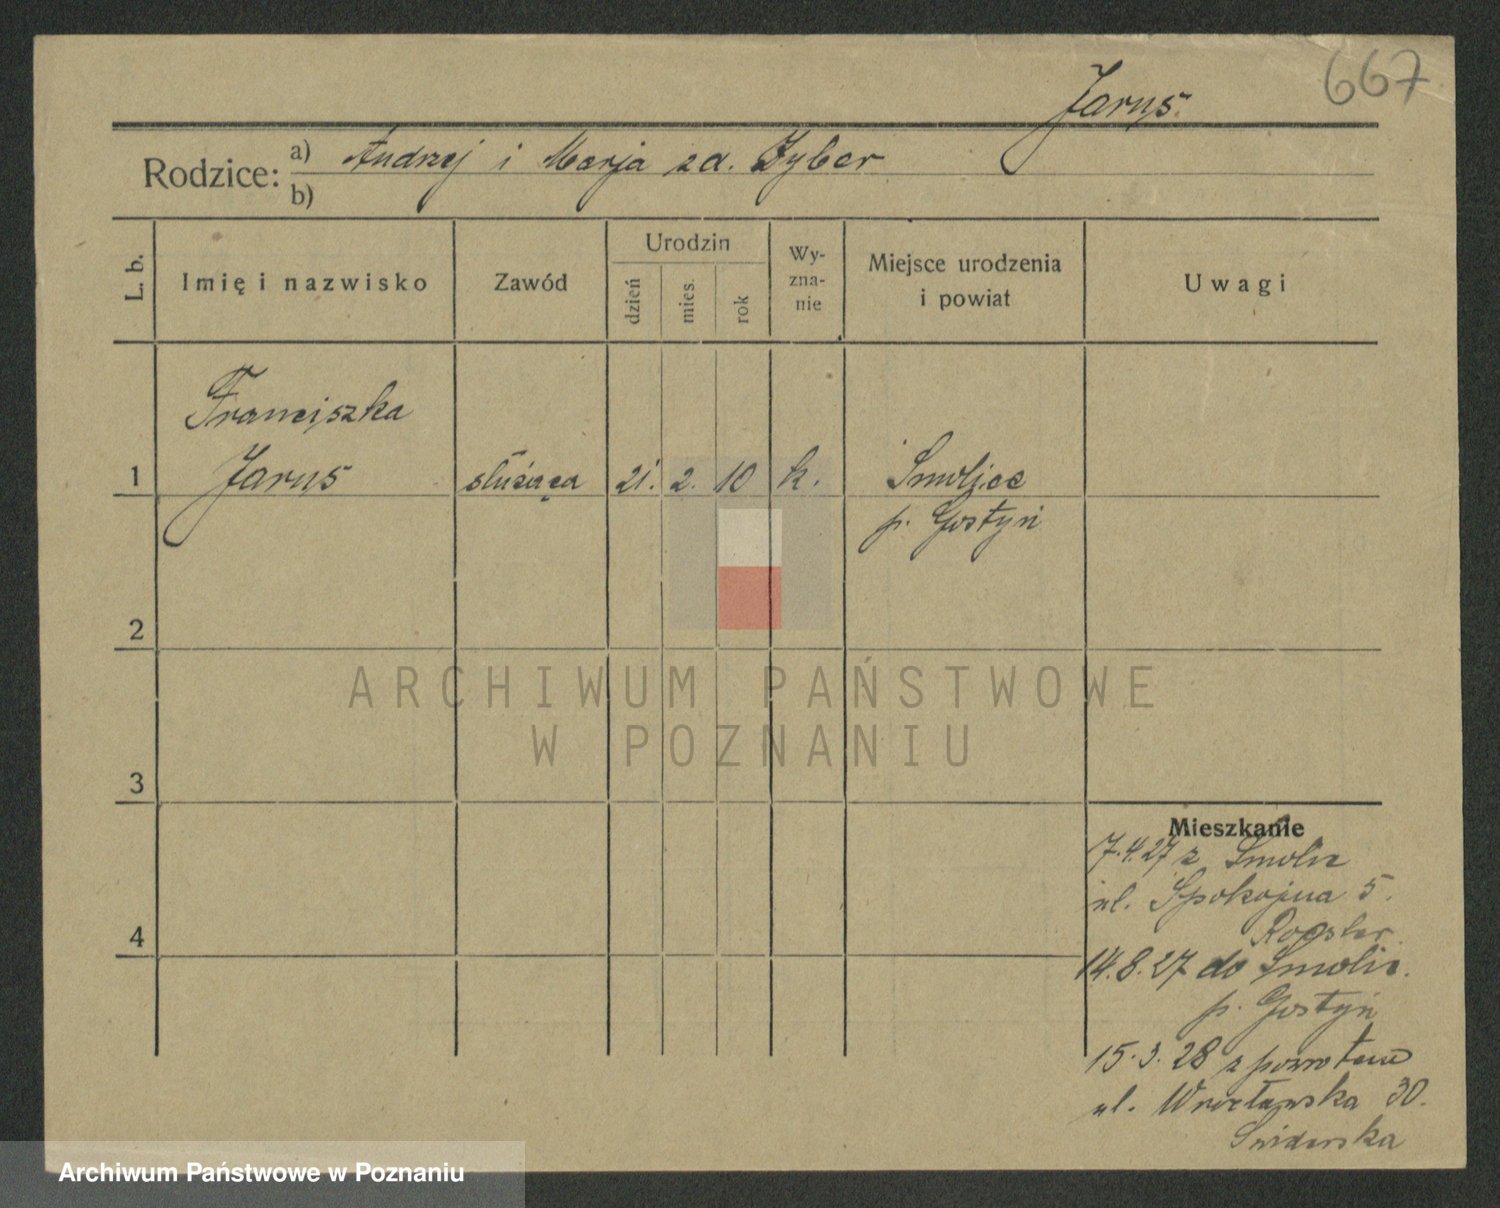 667
Jaruś
Rodzice: a) Andrzej i Marja zd. Zyber
b)
L. b. Imię i nazwisko Zawód Urodzin dzień mies. rok Wy-zna-nie Miejsce urodzenia i powiat Uwagi
Franciszka
1 Jaruś służąca 21. 2. 10 k. Smolice
p. Gostyń
2
ARCHIWUM PAŃSTWOWE
W POZNANIU
3
Mieszkanie
7.4.27 z Smolic
ul. Spokojna 5.
4
14.8.27 do Smolic.
p. Gostyń
15.3.28 z powrotem
ul. Wrocławska 30.
Świderska
Archiwum Państwowe w Poznaniu